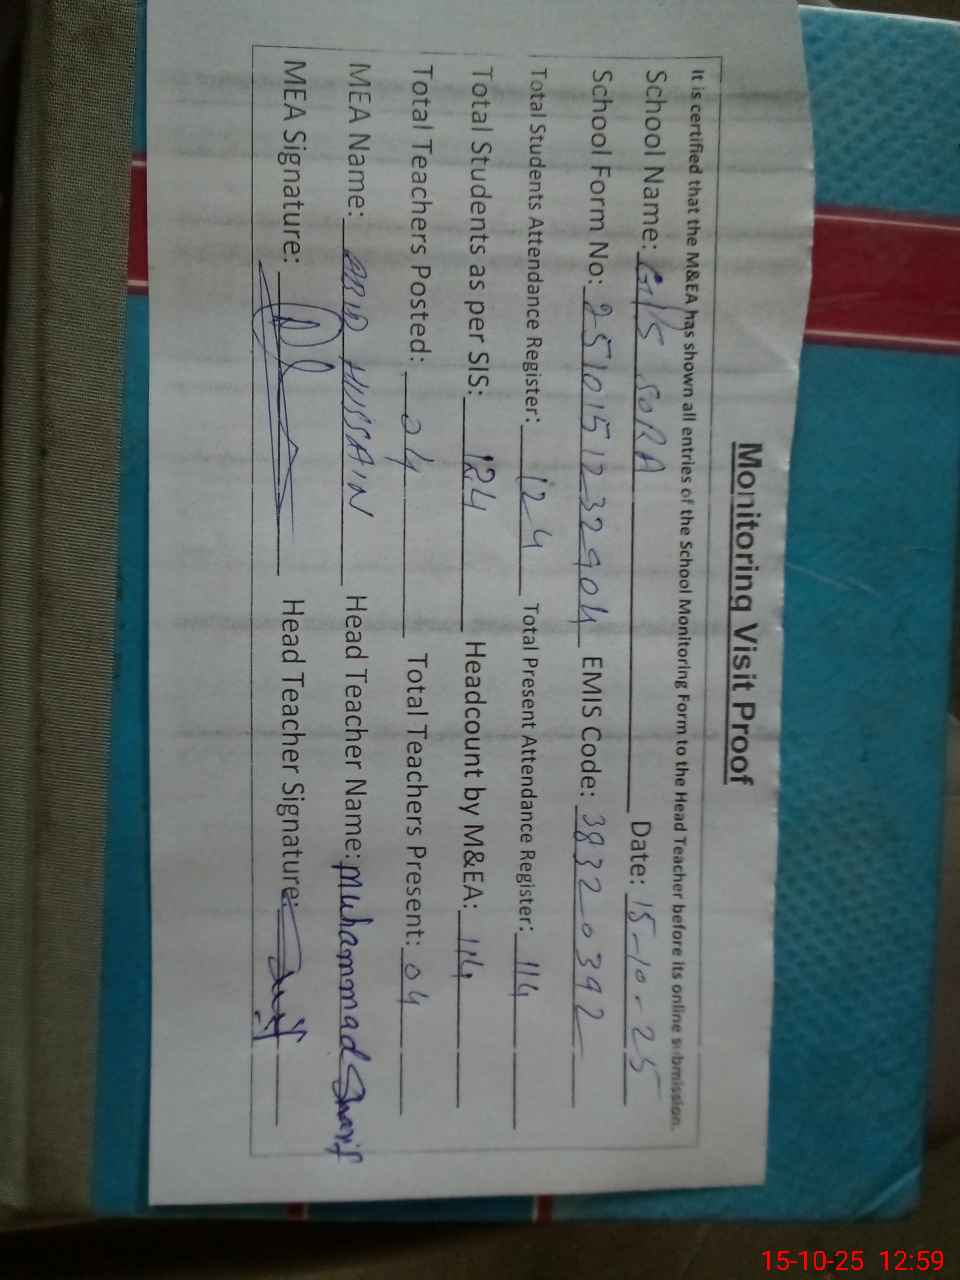 Monitoring Visit Proof
It is certified that the M&EA has shown all entries of the School Monitoring Form to the Head Teacher before its online submission.
School Name: G/S SORA Date: 15-10-25
School Form No: 2510151232904 EMIS Code: 38320392
Total Students Attendance Register: 124 Total Present Attendance Register: 114
Total Students as per SIS: 124 Headcount by M&EA: 114
Total Teachers Posted: 04 Total Teachers Present: 04
MEA Name: HUSSAIN Head Teacher Name: Muhammad Sharif
MEA Signature: Head Teacher Signature:
15-10-25 12:59